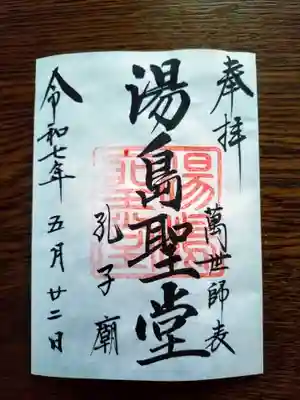 奉拝
萬世師表
湯島聖堂
孔子廟
令和七年 五月廿二日